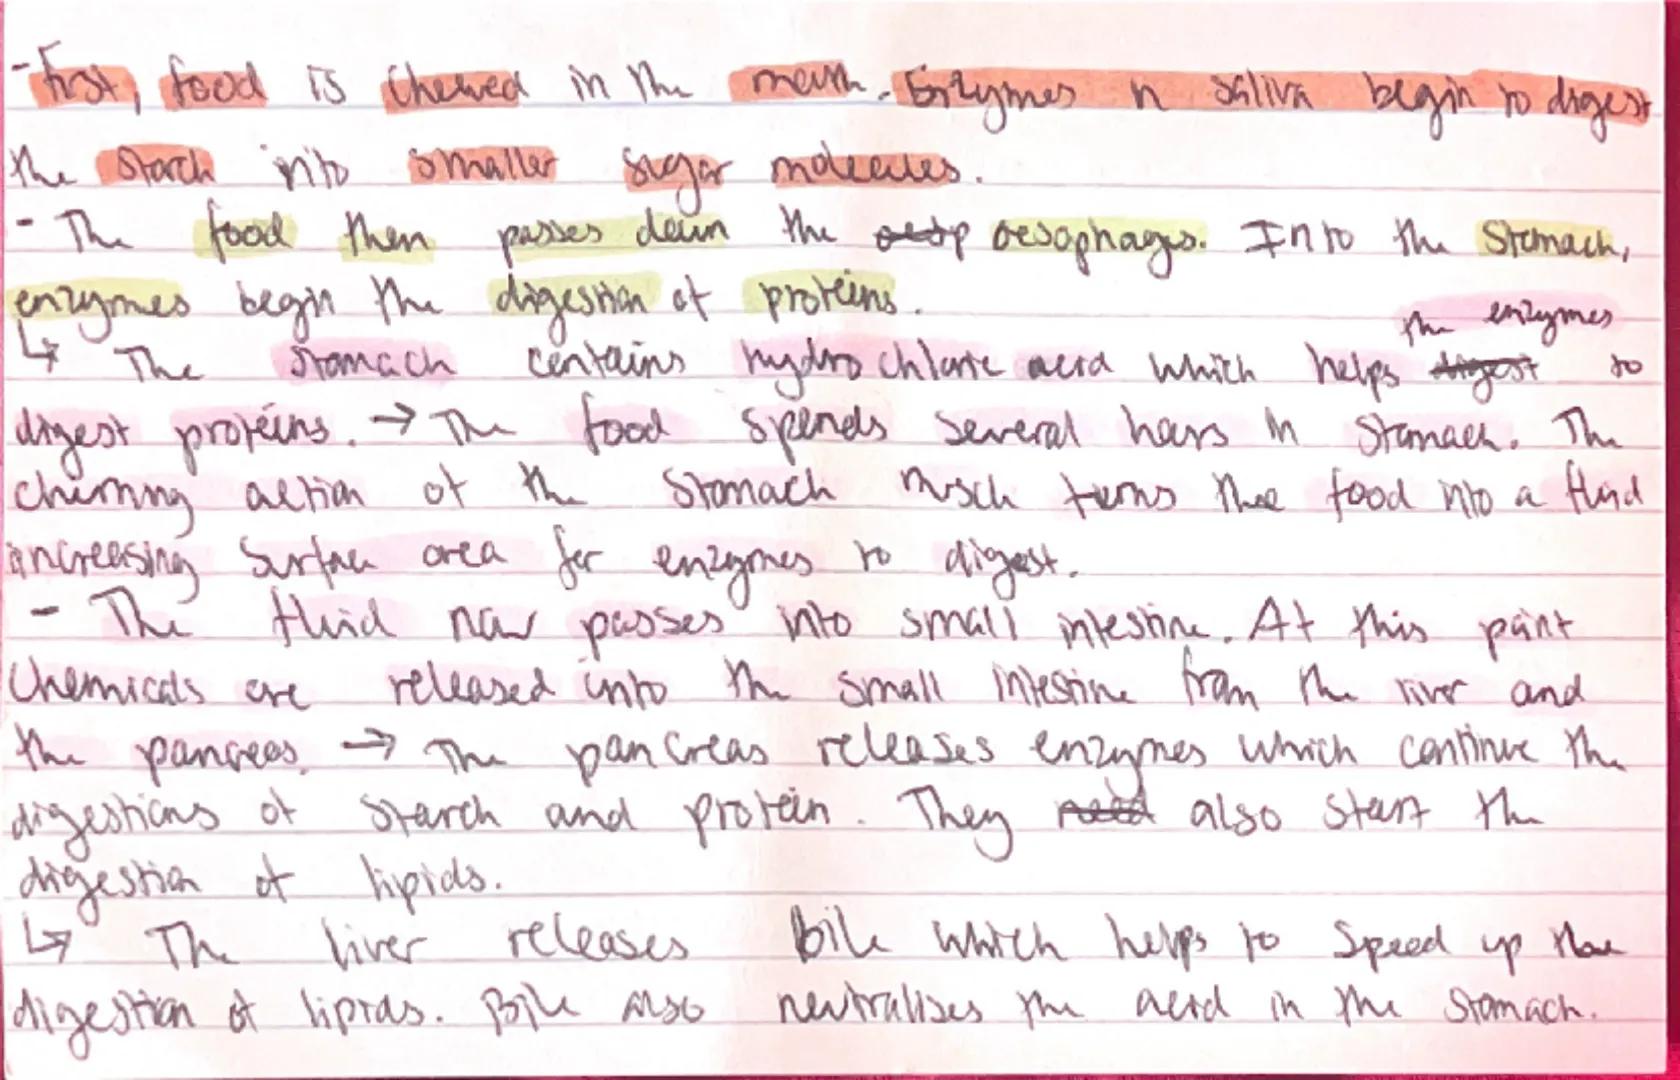 - First, food is chewed in the mouth. Enzymes in saliva begin to digest
the starch into smaller sugar molecules.
- The food then passes down the oesophagus. Into the stomach,
enzymes begin the digestion of proteins.
the enzymes
↳ The stomach contains hydrochloric acid which helps digest to
digest proteins. → The food spends several hours in stomach. The
churning action of the stomach muscle turns the food into a fluid
increasing surface area for enzymes to digest.
- The fluid now passes into small intestine. At this point
chemicals are released into the small intestine from the liver and
the pancreas. → The pancreas releases enzymes which continue the
digestions of starch and protein. They also start the
digestion of lipids.
↳ The liver releases bile which helps to speed up the
digestion of lipids. Bile also neutralises the acid in the stomach.